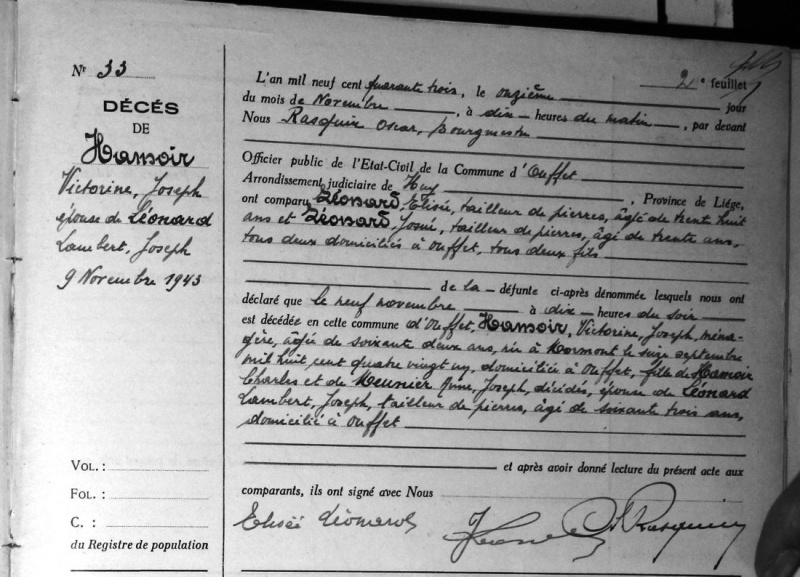 N° 33
DÉCÉS
DE
Hamoir
Victorine, Joseph
épouse de Léonard
Lambert, Joseph
9 Novembre 1943
VOL. :
FOL. :
C. :
du Registre de population
2e feuillet
L'an mil neuf cent quarante trois, le onzième jour
du mois de Novembre, à dix heures du matin, par devant
Nous Rasquin Oscar, Bourgmestre
Officier public de l'Etat-Civil de la Commune d'Ouffet
Arrondissement judiciaire de Huy, Province de Liége,
ont comparu Léonard, Elisée, tailleur de pierres, âgé de trente huit
ans et Léonard, Josué, tailleur de pierres, âgé de trente ans,
tous deux domiciliés à Ouffet, tous deux fils
de la défunte ci-après dénommée lesquels nous ont
déclaré que le neuf novembre à dix heures du soir
est décédée en cette commune d'Ouffet, Hamoir, Victorine, Joseph, ména-
gère, agée de soixante deux ans, née à Mormont le seize septembre
mil huit cent quatre vingt un, domiciliée à Ouffet, fille de Hamoir
Charles et de Meunier Anne, Joseph, décédés, épouse de Léonard
Lambert, Joseph, tailleur de pierres, âgé de soixante trois ans,
domicilié à Ouffet
et après avoir donné lecture du présent acte aux
comparants, ils ont signé avec Nous
Elisée Léonard
O. Rasquin